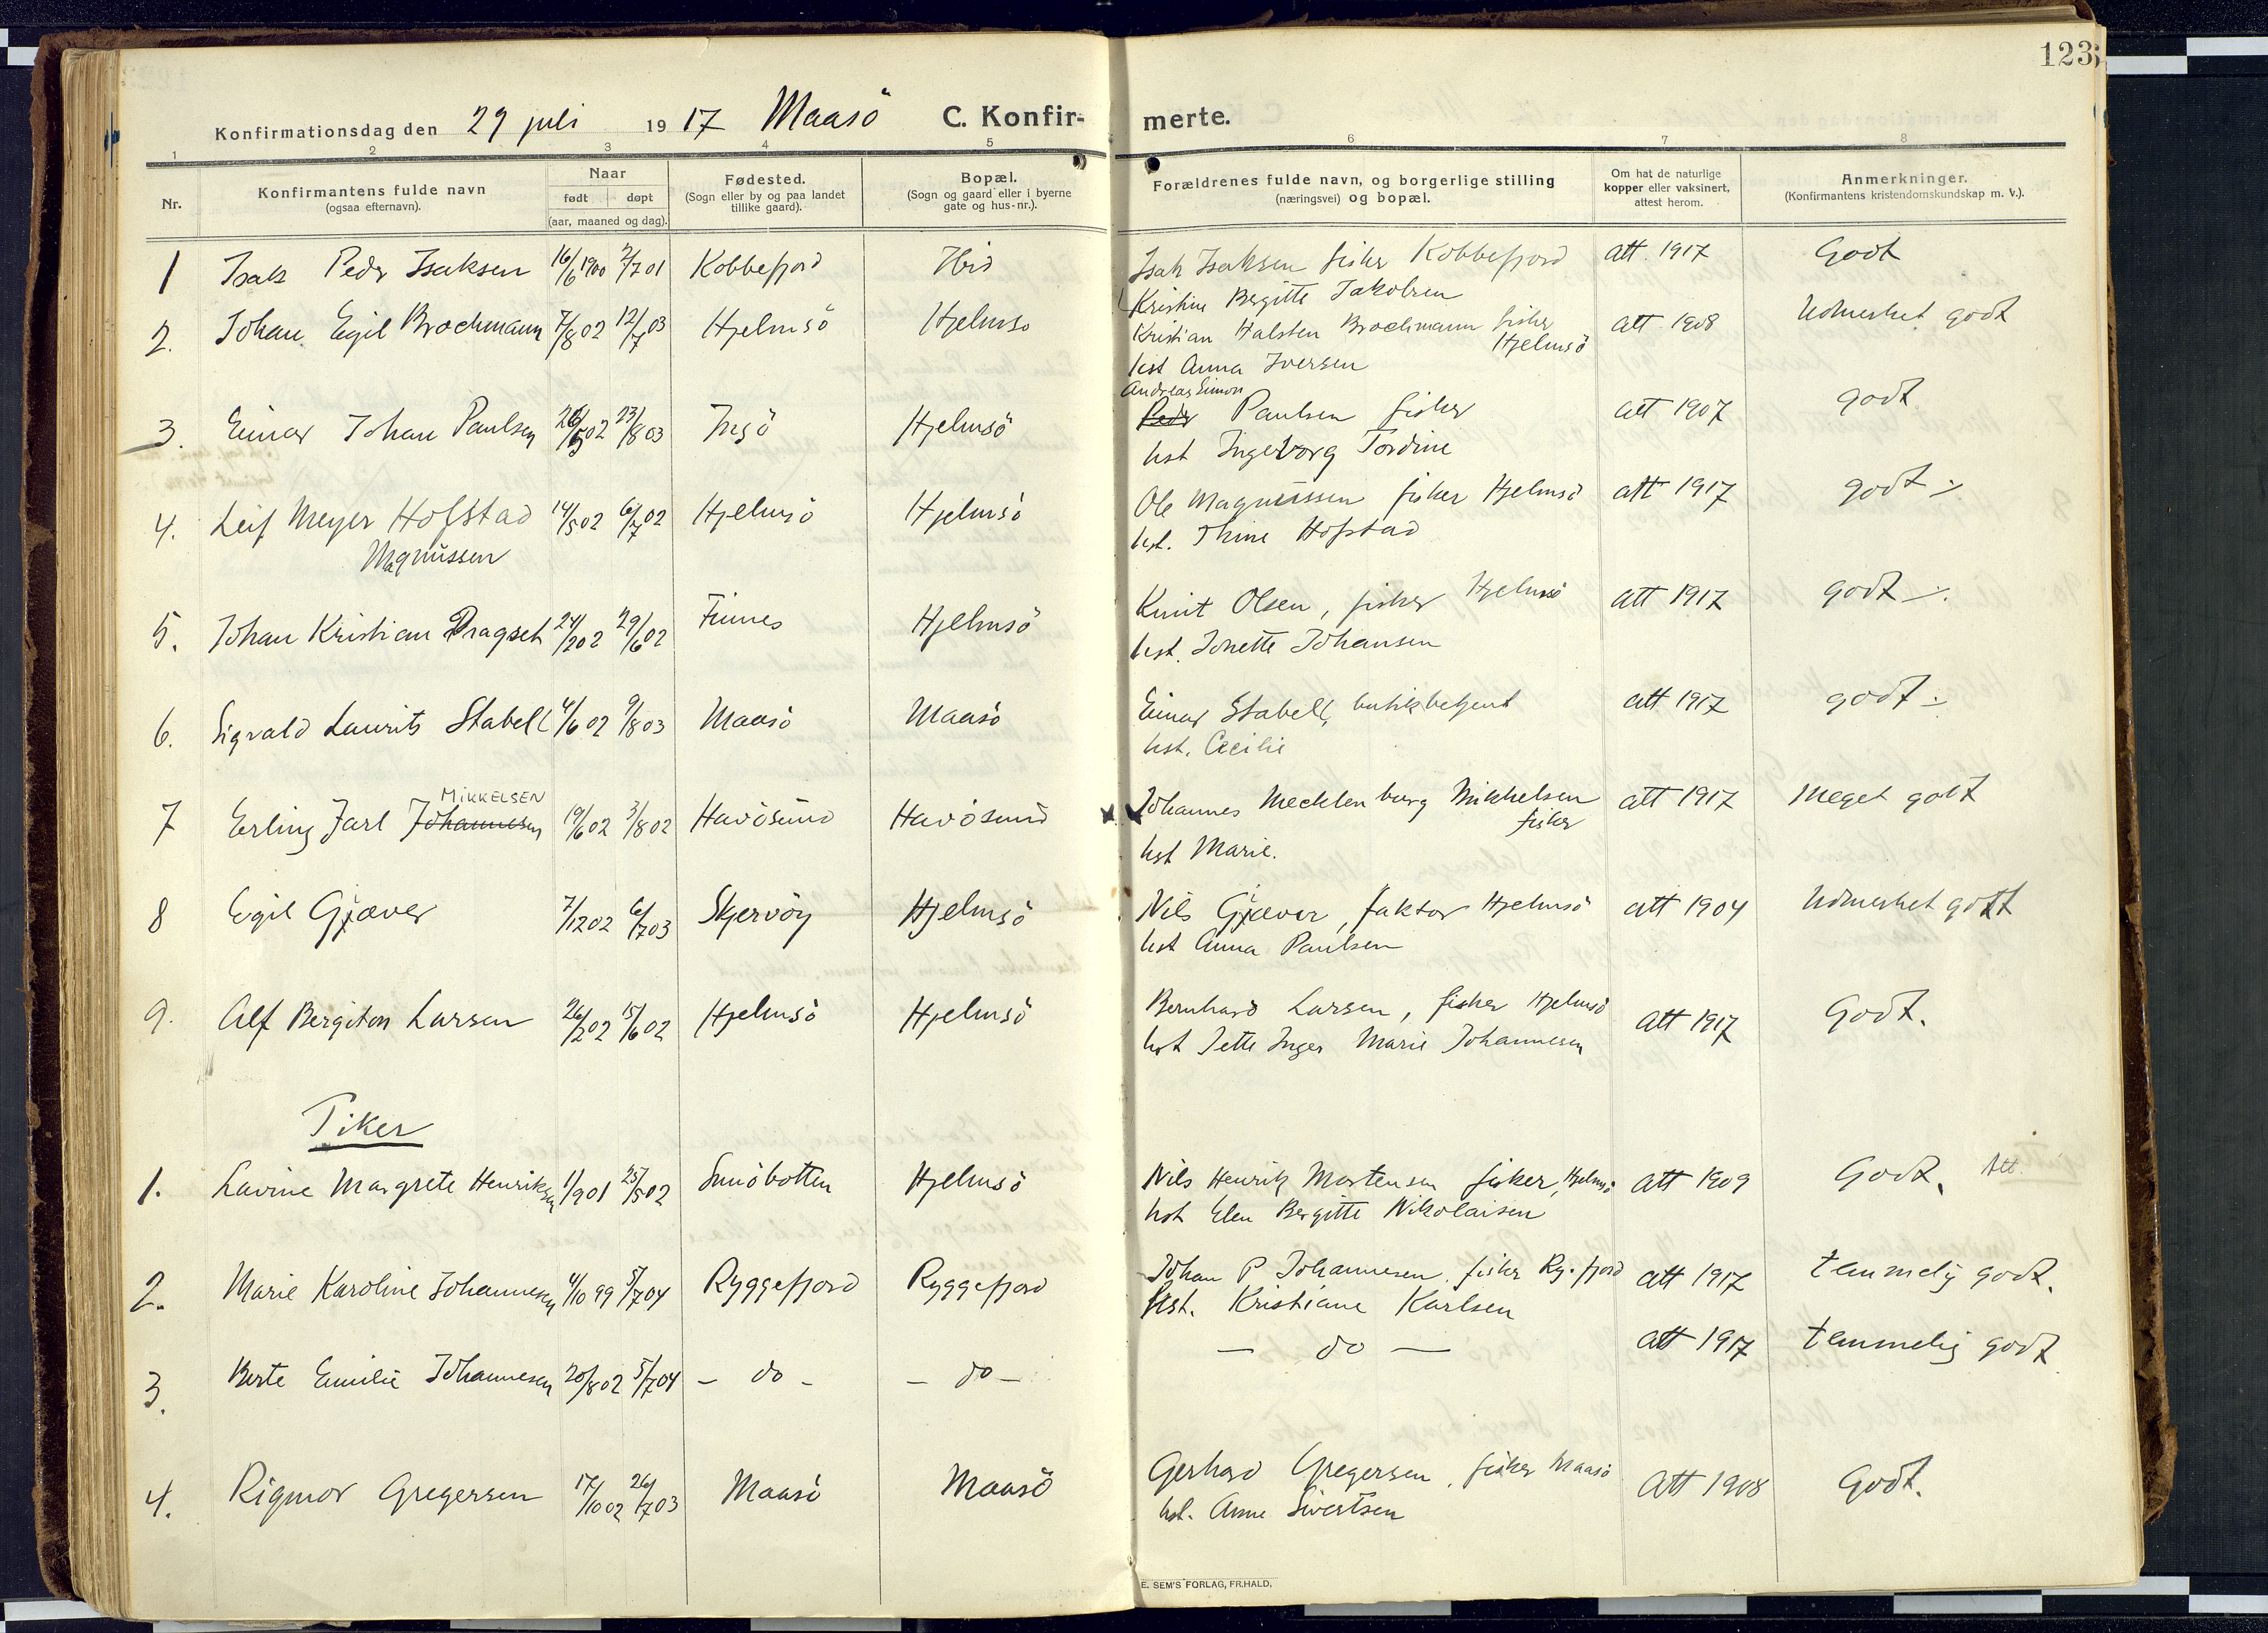 123
Konfirmationsdag den 29 juli 1917 Maasö C. Konfirmerte.
1 2 3 4 5 6 7 8
Nr. Konfirmantens fulde navn (ogsaa efternavn). Naar født døpt (aar, maaned og dag). Fødested. (Sogn eller by og paa landet tillike gaard). Bopæl. (Sogn og gaard eller i byerne gate og hus-nr.). Forældrenes fulde navn, og borgerlige stilling (næringsvei) og bopæl. Om hat de naturlige kopper eller vaksinert, attest herom. Anmerkninger. (Konfirmantens kristendomskundskap m. v.).
1 Isak Pedr Isaksen 16/6 1900 2/7 01 Kobbefjord Ibid Isak Isaksen fisker Kobbefjord att. 1917 Godt
Kristine Bergitte Jakobsen
2. Johan Egil Brochmann 7/8 02 12/7 03 Hjelmsö Hjelmsö Kristian Halsten Brochmann fisker Hjelmsö att 1908 Udmerket godt
hst Anna Iversen
3. Einar Johan Paulsen 26/5 02 23/8 03 Ingö Hjelmsö Andreas Simon Pedr Paulsen fisker att 1907 godt
hst Ingeborg Tordine
4. Leif Meyer Hofstad 14/5 02 6/7 02 Hjelmsö Hjelmsö Ole Magnussen fisker Hjelmsö att 1917 godt
Magnussen hst. Thine Hofstad
5. Johan Kristian Dragseth 24/2 02 29/6 02 Finnes Hjelmsö Knut Olsen, fisker Hjelmsö att 1917 godt
hst. Jonette Johansen
6. Sigvald Laurits Stabell 4/6 02 9/8 03 Maasö Maasö Einar Stabell, butikbetjent att 1917 godt
hst. Cecilie
MIKKELSEN
7 Erling Jarl Johannesen 19/6 02 3/8 02 Havösund Havösund Johannes Mecklenburg Mikkelsen fisker att 1917 Meget godt
hst Marie.
8 Egil Gjæver 7/12 02 6/7 03 Skjervöy Hjelmsö Nils Gjæver, faktor Hjelmsö att 1904 Udmerket godt
hst Anna Paulsen
9. Alf Bergiton Larsen 26/2 02 15/6 02 Hjelmsö Hjelmsö Bernhard Larsen, fisker Hjelmsö att 1917 Godt.
hst Jette Inger Marie Johannesen
Piker
1. Lavine Margrete Henriksen 1/9 01 25/5 02 Snöbotten Hjelmsö Nils Henrik Mortensen fisker, Hjelmsö att 1909 Godt. Att.
hst Elen Bergitte Nikolaisen
2. Marie Karoline Johannesen 4/10 99 5/7 04 Ryggefjord Ryggefjord Johan P Johannesen. fisker Ry.fjord att 1917 temmelig godt.
hst. Kristiane Karlsen
3. Berte Emilie Johannesen 20/8 02 5/7 04 - do - - do - — do — att 1917 temmelig godt
4. Rigmor Gregersen 17/10 02 26/7 03 Maasö Maasö Gerhard Gregersen, fisker Maasö Att 1908 Godt.
hst. Anne Sivertsen
E. SEM'S FORLAG, FR.HALD.